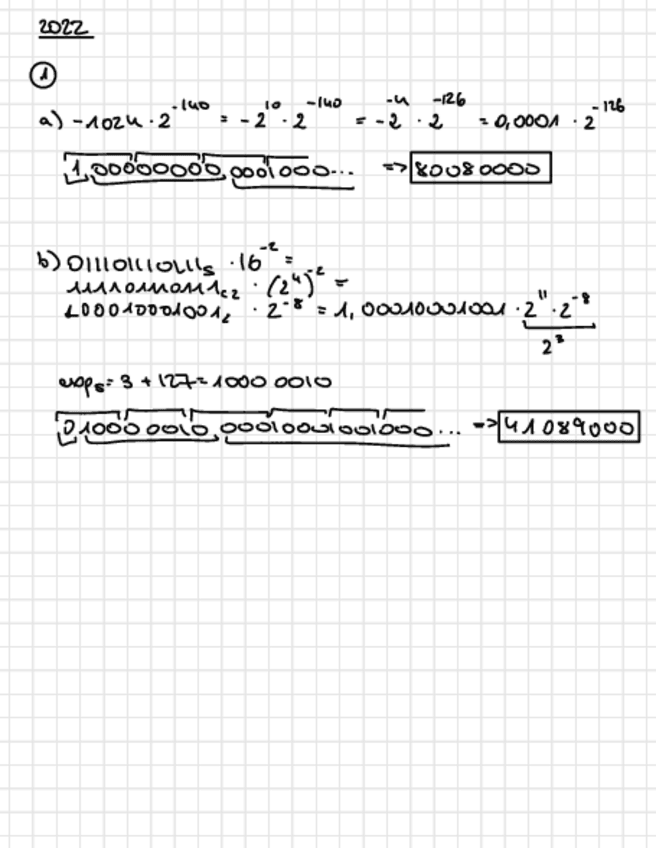 2022
1
a) -1024 · 2^-140 = -2^10 · 2^-140 = -2^-4 · 2^-126 = 0,0001 · 2^-126
1 00000000 0001000... => 80080000
b) 011101110111s · 16^-2 =
111101110111c2 · (2^4)^-2 =
100010001001₂ · 2^-8 = 1,00010001001 · 2^11 · 2^-8
2^3
exps = 3 + 127 = 1000 0010
0 1000 0010 0001001001000... => 41089000